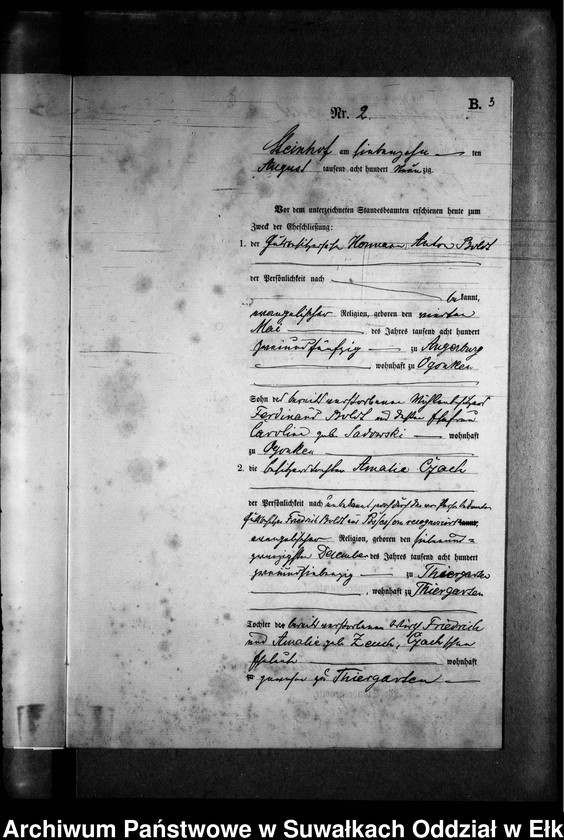 B. 3
Nr. 2.
Steinhof am siebenzehn ten
August tausend acht hundert Neunzig.
Vor dem unterzeichneten Standesbeamten erschienen heute zum
Zweck der Eheschließung:
1. der Gutsbesitzersohn Hermann Anton Boldt
der Persönlichkeit nach
bekannt,
evangelischer Religion, geboren den vierten
Mai des Jahres tausend acht hundert
zweiundfünfzig zu Angerburg
, wohnhaft zu Ogonken
Sohn des bereits verstorbenen Mühlenbesitzers
Ferdinand Boldt und dessen Ehefrau
Caroline geb. Sadowski wohnhaft
zu Ogonken
2. die Besitzertochter Amalie Czach
der Persönlichkeit nach unbekannt, durch den
Gutsbesitzer Friedrich Boldt aus recognosciert
evangelischer Religion, geboren den siebenund=
zwanzigsten December des Jahres tausend acht hundert
zweiundsiebenzig zu Thiergarten
, wohnhaft zu Thiergarten
Tochter der bereits verstorbenen Wirth Friedrich
und Amalie geb. Zeuch, Czachschen
Eheleute wohnhaft
gewesen zu Thiergarten
Archiwum Państwowe w Suwałkach Oddział w Ełk